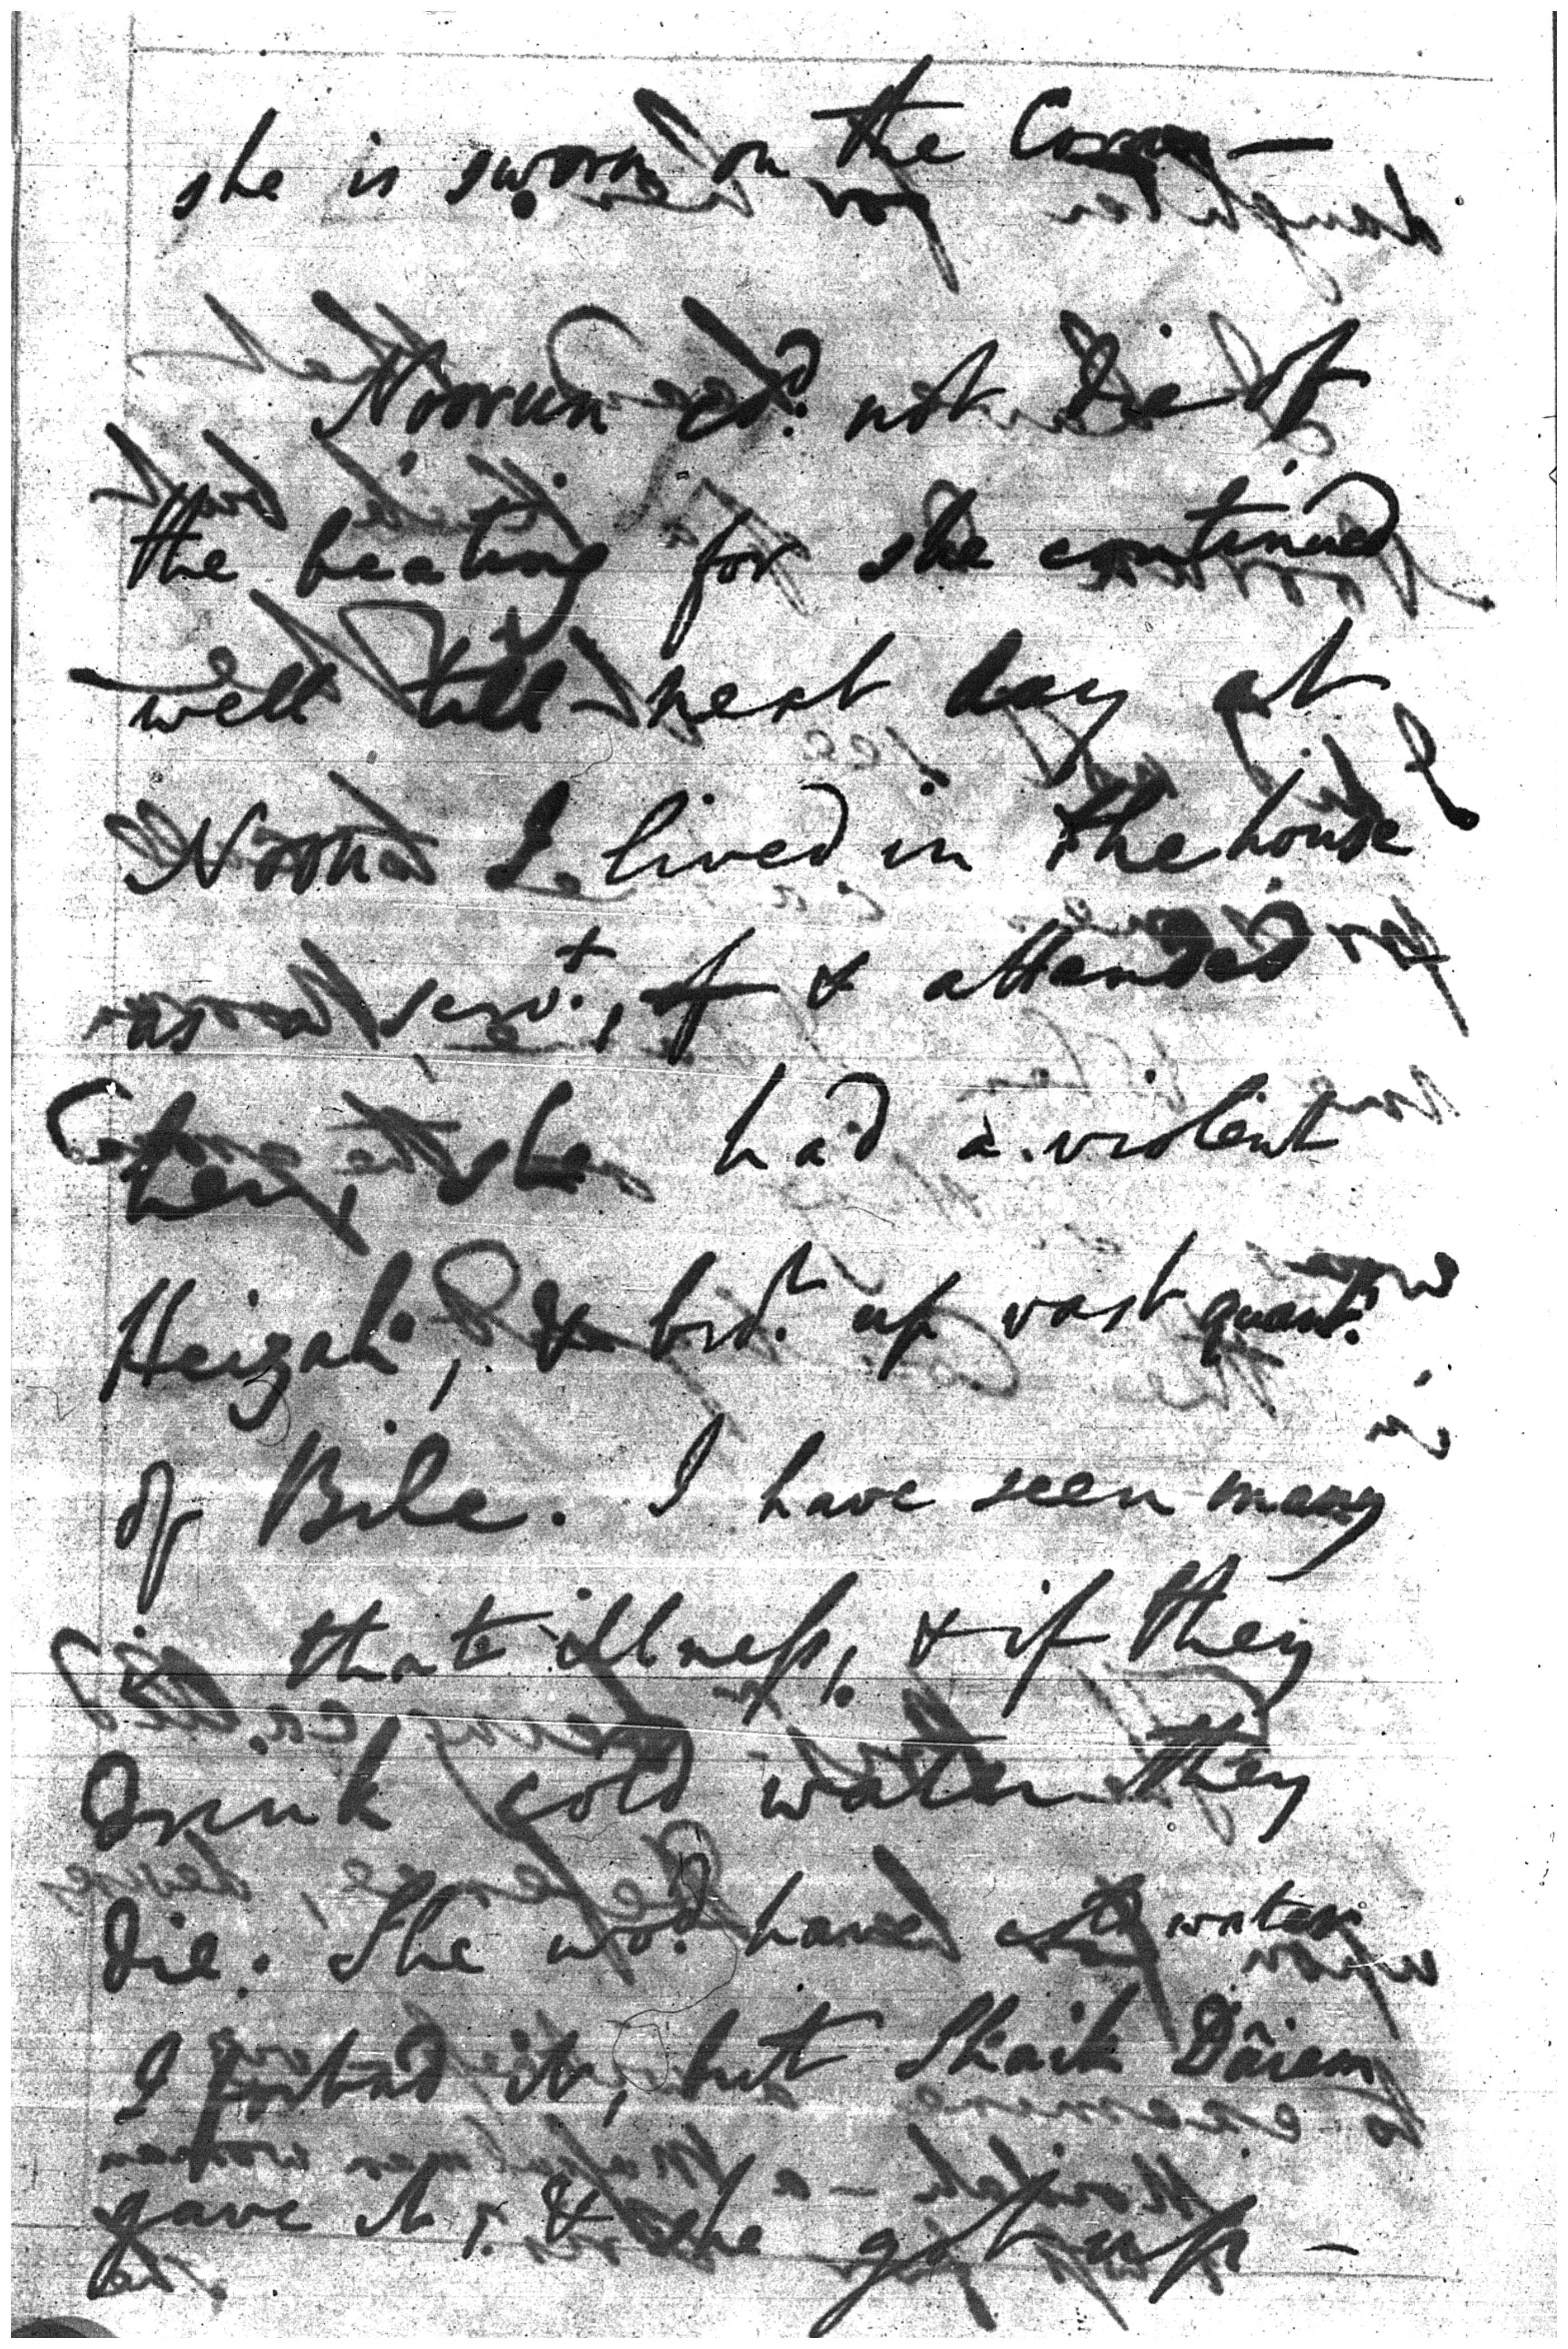 she is sworn on the Coran —
Noorun cd. not die of
the beating for she continued
well till next day at
Noon I lived in the house
as a servt., & attended
her, she had a violent
Heizah, & brot. up vast quant.
of Bile. I have seen many
in that illness, & if they
drink cold water they
die. She wod. have water
I forbad it, but Shaik Dâiem
gave it, & she got up —